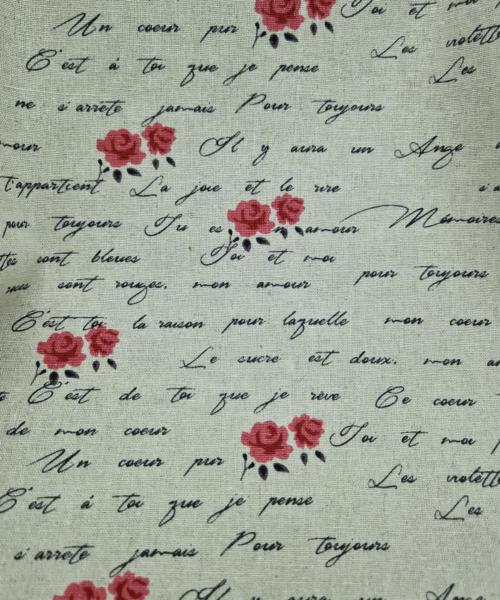 Toi et
Un coeur pur
Les violette
C'est à toi que je pense
Les
ne s'arrete jamais Pour toujours
mour Il y aura un Ange
t'appartient La joie et le rire
pour toujours Tu es mon amour Mémoires
sont bleues Toi et moi
pour toujours
sont rouges. mon amour
C'est toi la raison pour laquelle mon coeur
Le sucre est doux. mon
C'est de toi que je rêve Ce coeur
de mon coeur Toi et moi
Un coeur pur
Les violette
C'est à toi que je pense Les
s'arrete jamais Pour toujours
Il y aura un Ange